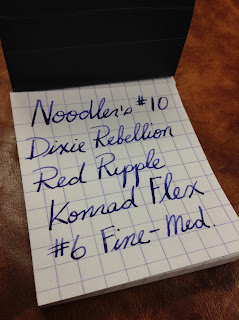 Noodler's #10
Dixie Rebellion
Red Rypple
Konrad Flex
#6 Fine-Med.